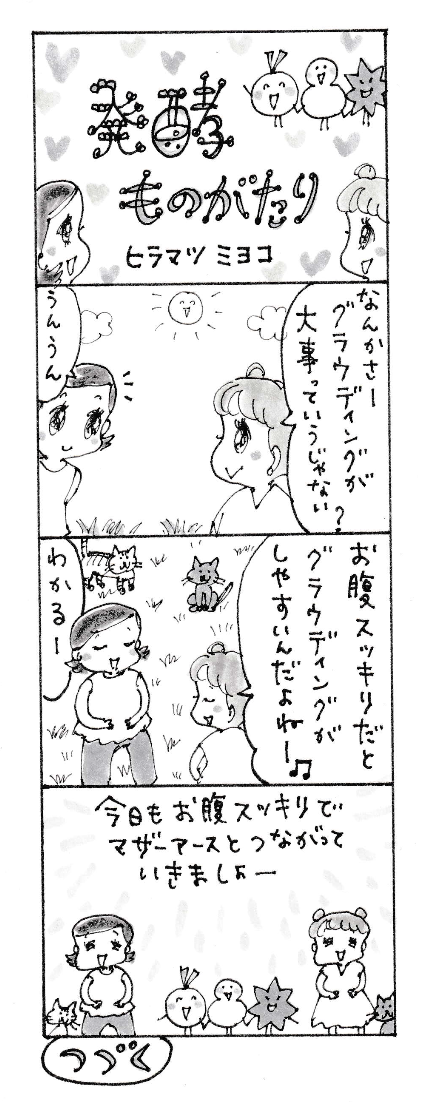 発酵
ものがたり
ヒラマツ ミヨコ
なんかさー
グラウディングが
大事っていうじゃない?
うんうん
お腹スッキリだと
グラウディングが
しやすいんだよねー♫
わかるー
今日もお腹スッキリで
マザーアースとつながって
いきましょー
つづく